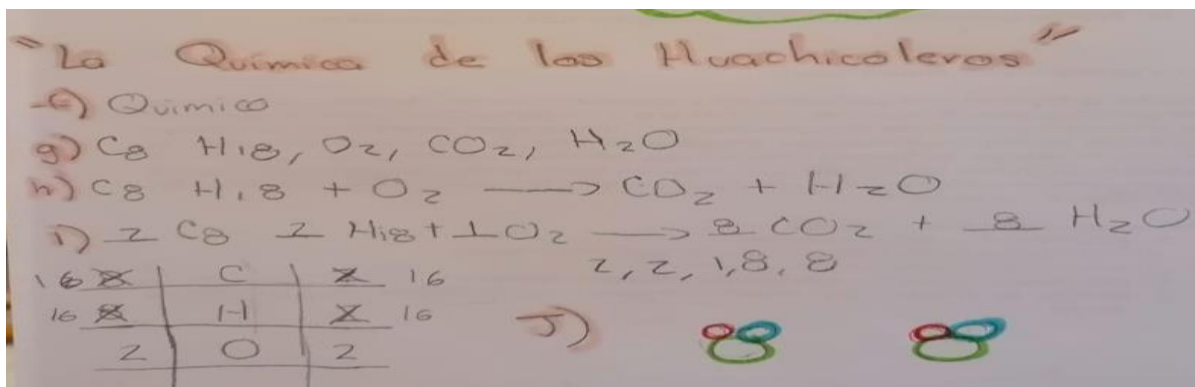 "La Química de los Huachicoleros"
f) Químico
g) C8 H18, O2, CO2, H2O
h) C8 H18 + O2 → CO2 + H2O
i) 2 C8 2 H18 + 1 O2 → 8 CO2 + 8 H2O
2, 2, 1, 8, 8
16 8 | C | 2 16
16 8 | H | 2 16
2 | O | 2
J)